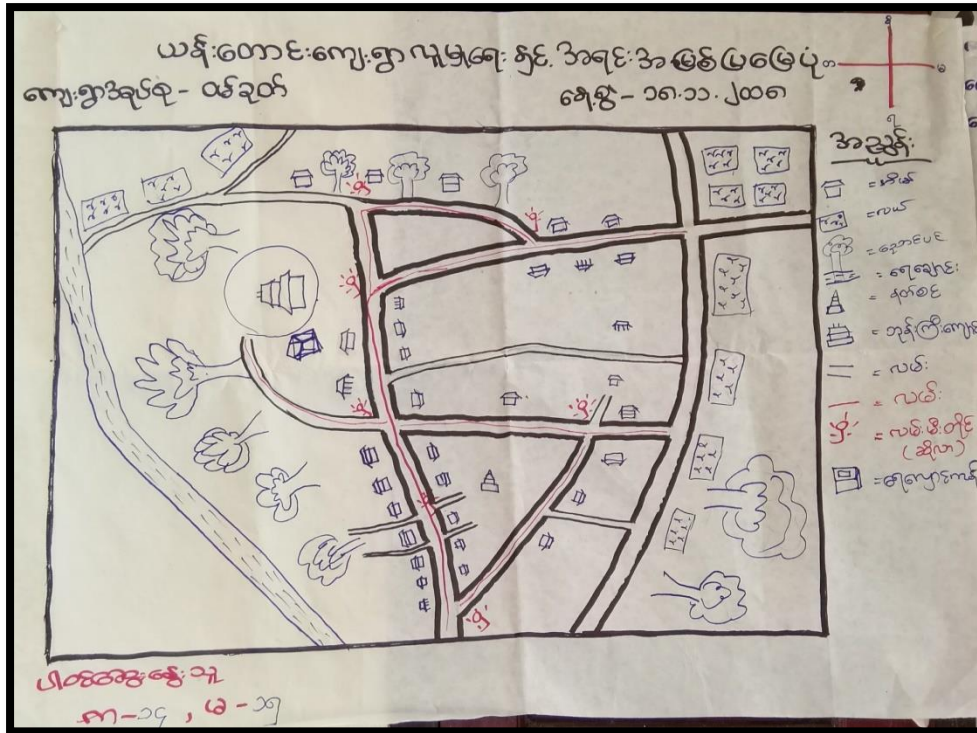 ယန်းတောင်းကျေးရွာ လူမှုရေး နှင့် အရင်းအမြစ်ပြမြေပုံ
ကျေးရွာအုပ်စု - ဝမ်ခုတ်
နေ့စွဲ - ၁၈.၁၁.၂၀၁၈
အညွှန်း
= အိမ်
= လယ်
= ညောင်ပင်
= ရေချောင်း
= နတ်စင်
= ဘုန်းကြီးကျောင်း
= လမ်း
= လမ်း
= လမ်းမီးတိုင်
(ဆိုလာ)
= ရေလှောင်ကန်
ပါဝင်ဆွေးနွေးသူ
ကျာ - ၁၄ , မ - ၁၅